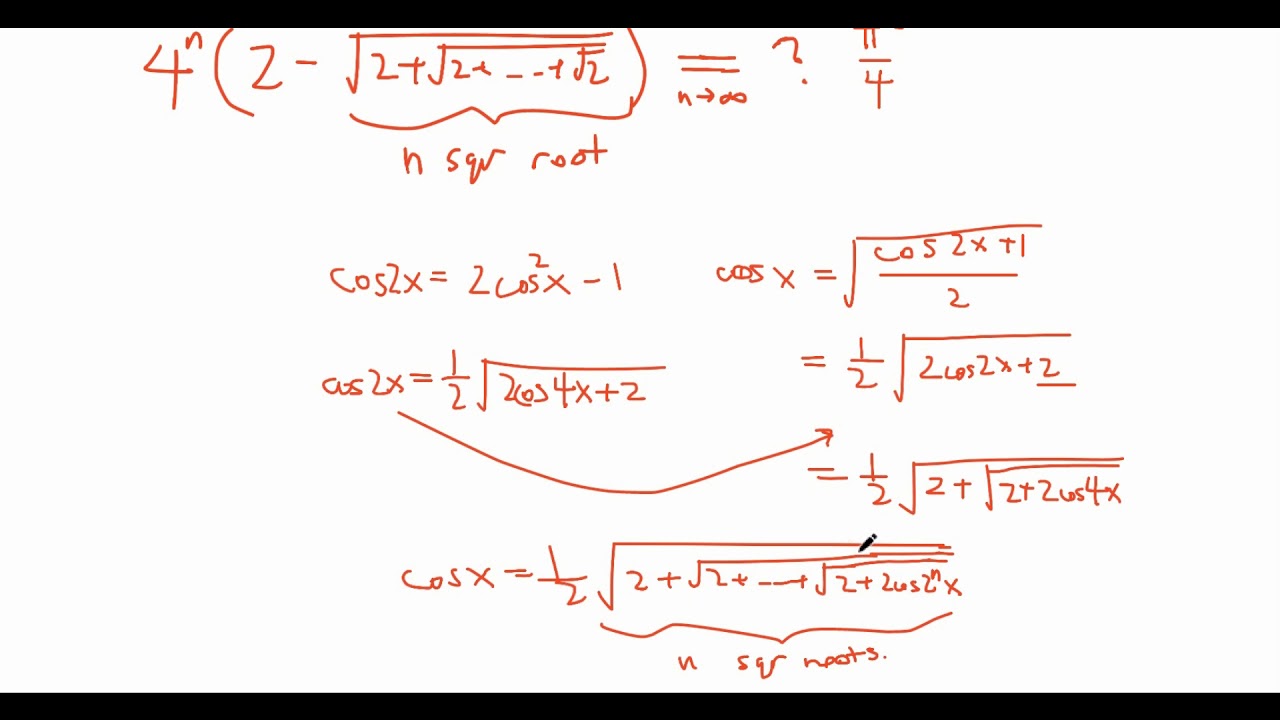 4^n (2 - √(2+√(2+ --+√2))) = ? π/4
n→∞
n sqr root
cos2x = 2cos^2 x - 1
cosx = √((cos2x+1)/2)
cos2x = 1/2 √(2cos4x+2)
= 1/2 √(2cos2x+2)
= 1/2 √(2+√(2+2cos4x))
cosx = 1/2 √(2+√(2+ --+√(2+2cos2^n x)))
n sqr roots.